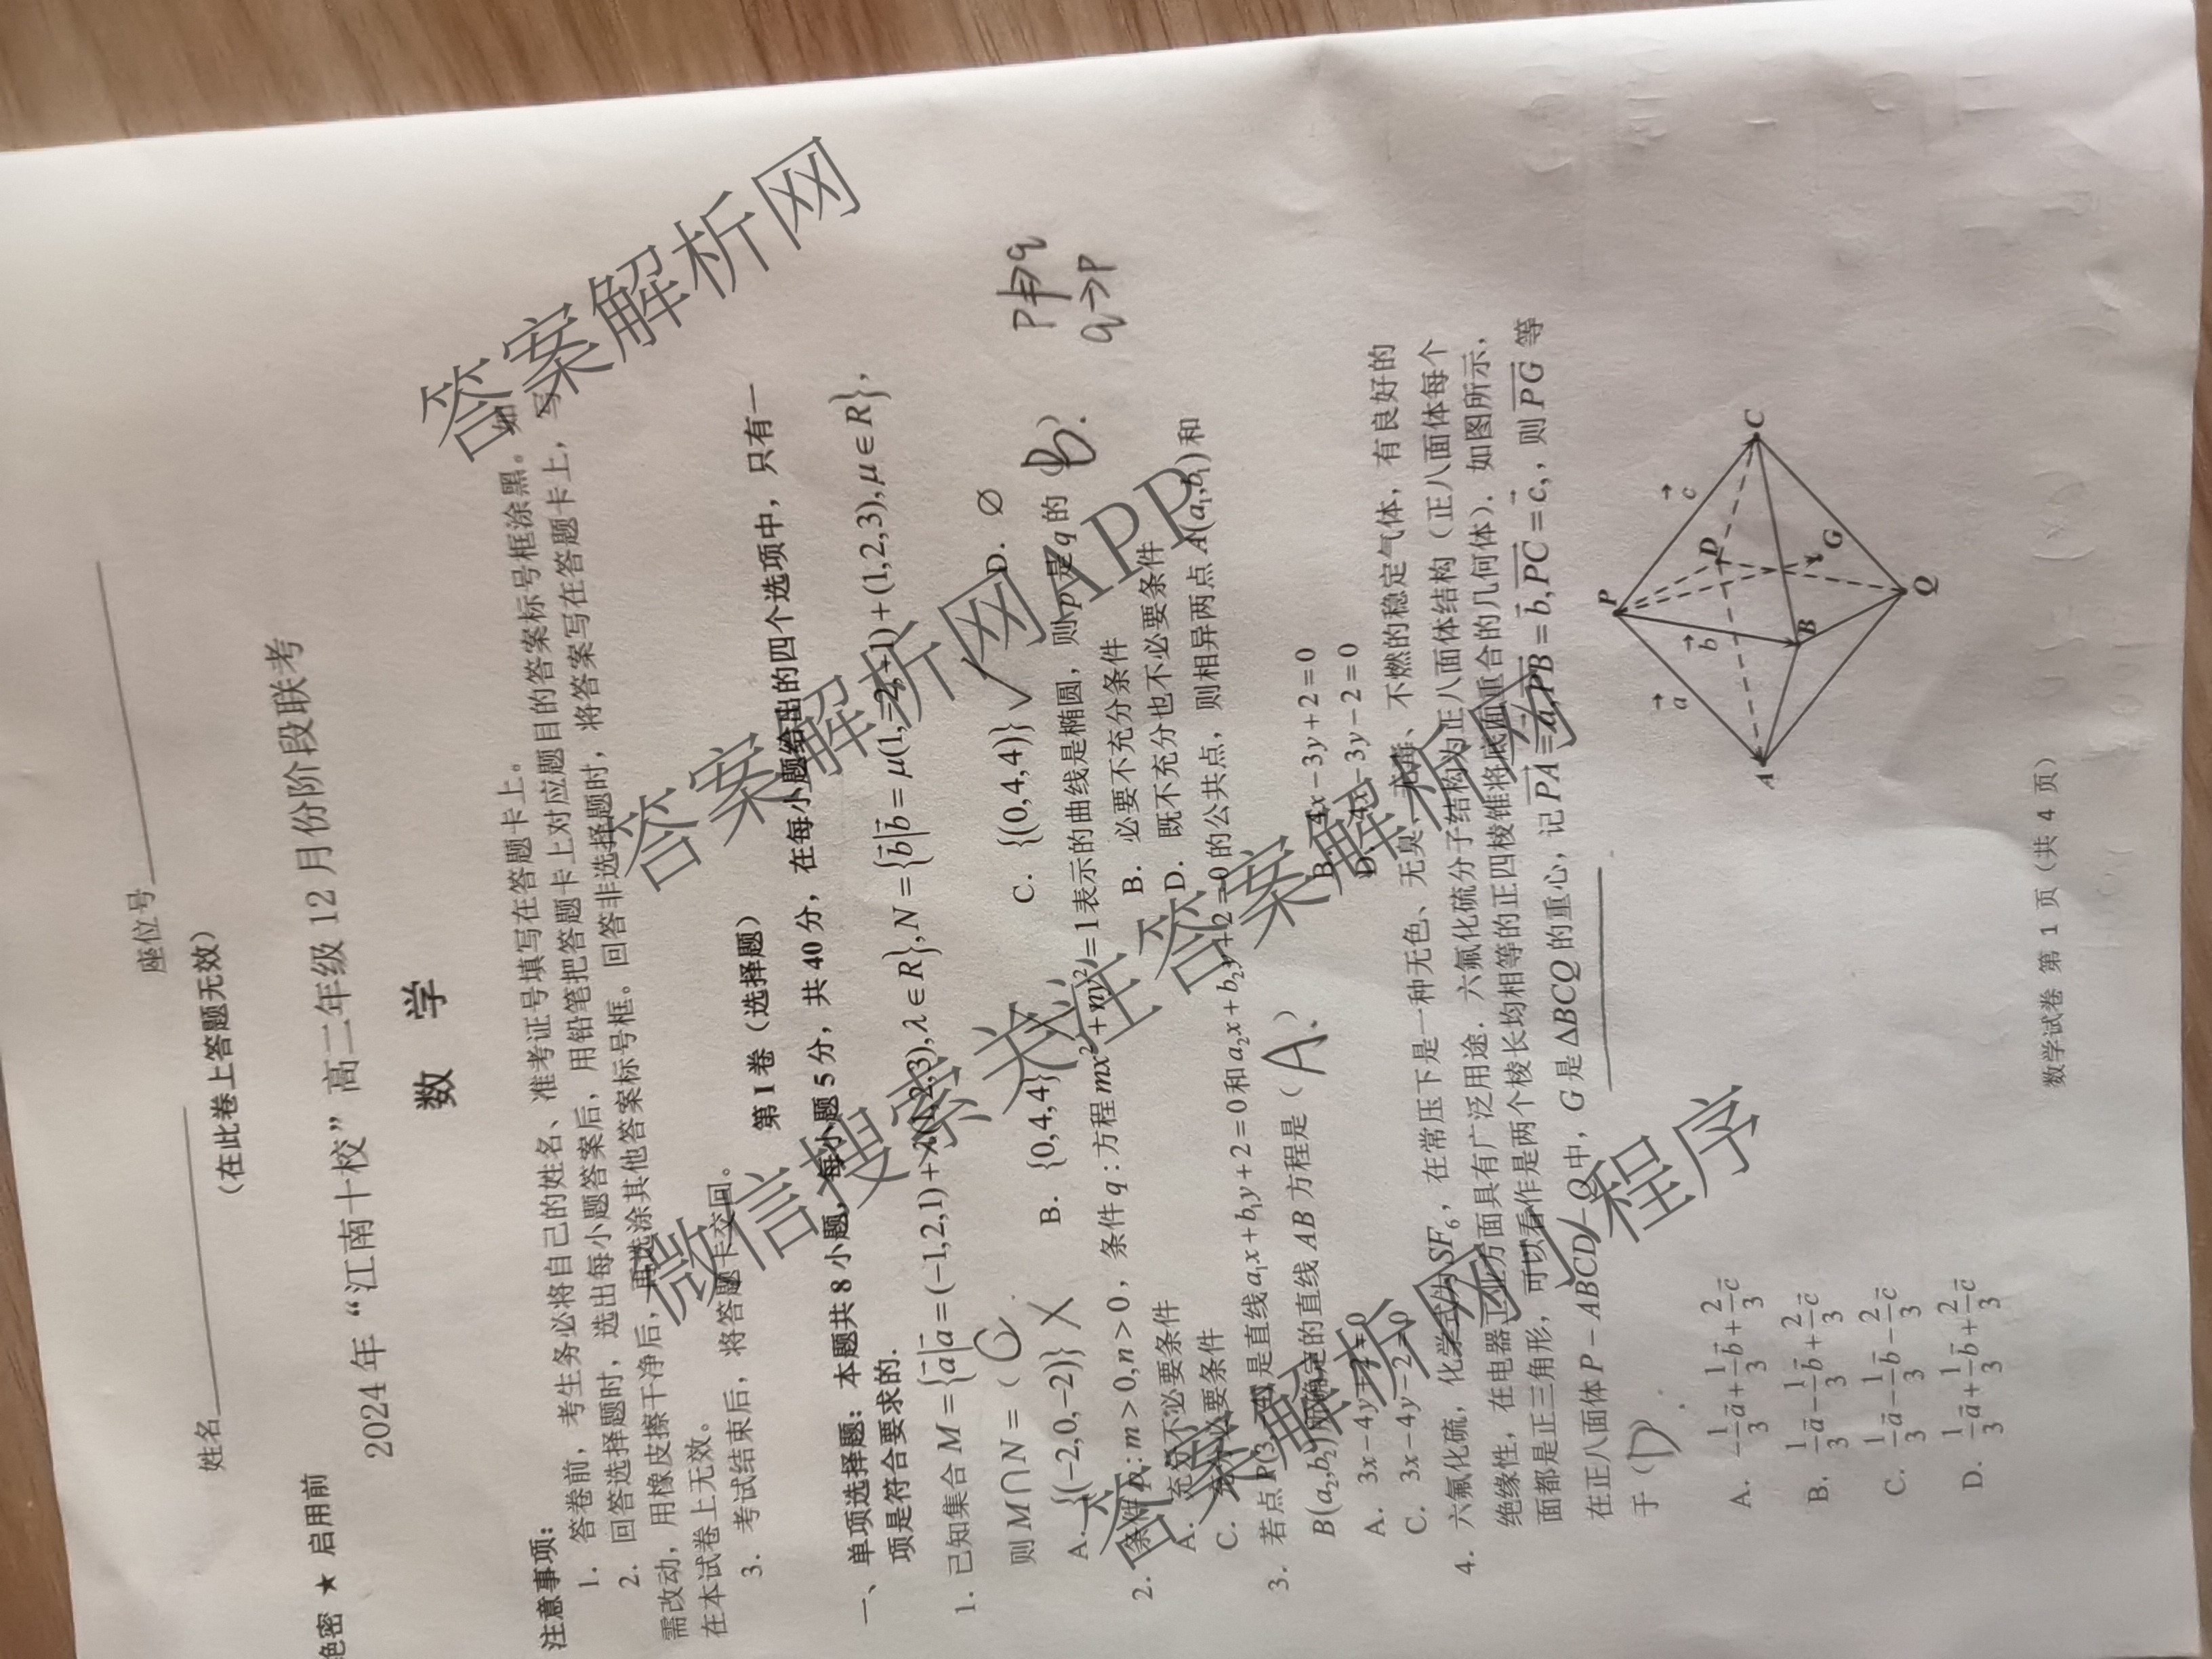 绝密 ★ 启用前
姓名 座位号
（在此卷上答题无效）
2024 年“江南十校”高二年级 12 月份阶段联考
数 学
注意事项：
1．答卷前，考生务必将自己的姓名、准考证号填写在答题卡上。
2．回答选择题时，选出每小题答案后，用铅笔把答题卡上对应题目的答案标号框涂黑。如
需改动，用橡皮擦干净后，再选涂其他答案标号框。回答非选择题时，将答案写在答题卡上，写
在本试卷上无效。
3．考试结束后，将答题卡交回。
第 I 卷（选择题）
一、单项选择题：本题共 8 小题，每小题 5 分，共 40 分，在每小题给出的四个选项中，只有一
项是符合要求的.
1．已知集合 M = {a|a = (−1,2,1)+λ(1,2,3),λ∈R},N = {b|b = μ(1,−2,−1)+(1,2,3),μ∈R},
则 M∩N =（ C
A．{(−2,0,−2)} × B．{0,4,4} C．{(0,4,4)} √ D．∅
2．条件 p：m＞0,n＞0，条件 q：方程 mx²+ny²=1 表示的曲线是椭圆，则 p 是 q 的（B.）
p⇏q
q→p
A．充分不必要条件 B．必要不充分条件
C．充分必要条件 D．既不充分也不必要条件
3．若点 是直线 a₁x+b₁y+2=0 和 a₂x+b₂y+2=0 的公共点，则相异两点 A(a₁,b₁) 和
B(a₂,b₂) 所确定的直线 AB 方程是（ A. ）
A．3x−4y+2=0 B．4x−3y+2=0
C．3x−4y−2=0 D．4x−3y−2=0
4．六氟化硫，化学式为SF₆，在常压下是一种无色、无臭、无毒、不燃的稳定气体，有良好的
绝缘性，在电器工业方面具有广泛用途．六氟化硫分子结构为正八面体结构（正八面体每个
面都是正三角形，可以看作是两个棱长均相等的正四棱锥将底面重合的几何体）．如图所示，
在正八面体 P−ABCD−Q 中，G 是 ΔBCQ 的重心，记 PA = a,PB = b,PC = c，则 PG 等
于（ D
A．−1/3 a+1/3 b+2/3 c
B．1/3 a−1/3 b+2/3 c
C．1/3 a−1/3 b−2/3 c
D．1/3 a+1/3 b+2/3 c
P
a b c
A B C D
G
Q
数学试卷 第 1 页（共 4 页）
答案解析网
答案解析网APP
微信搜索 公众号 答案解析网
答案解析网 小程序